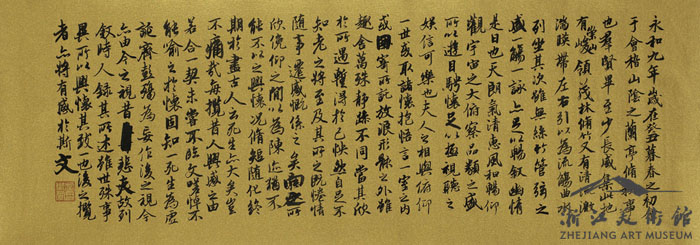 永和九年歲在癸丑暮春之初
于會稽山陰之蘭亭脩禊事
也羣賢畢至少長咸集此地
有崇山峻領茂林脩竹又有清流激
湍暎帶左右引以為流觴曲水
列坐其次雖無絲竹管弦之
盛一觴一詠亦足以暢叙幽情
是日也天朗氣清惠風和暢仰
觀宇宙之大俯察品類之盛
所以遊目騁懷足以極視聽之
娛信可樂也夫人之相與俯仰
一世或取諸懷抱悟言一室之內
或因寄所託放浪形骸之外雖
趣舍萬殊靜躁不同當其欣
於所遇暫得於己怏然自足不
知老之將至及其所之既惓情
隨事遷感慨係之矣向之所
欣俛仰之間以為陳迹猶不
能不以之興懷況脩短隨化終
期於盡古人云死生亦大矣豈
不痛哉每攬昔人興感之由
若合一契未嘗不臨文嗟悼不
能喻之於懷固知一死生為虛
誕齊彭殤為妄作後之視今
亦由今之視昔悲夫故列
叙時人錄其所述雖世殊事
異所以興懷其致一也後之攬
者亦將有感於斯文
浙江美術館
ZHEJIANG ART MUSEUM